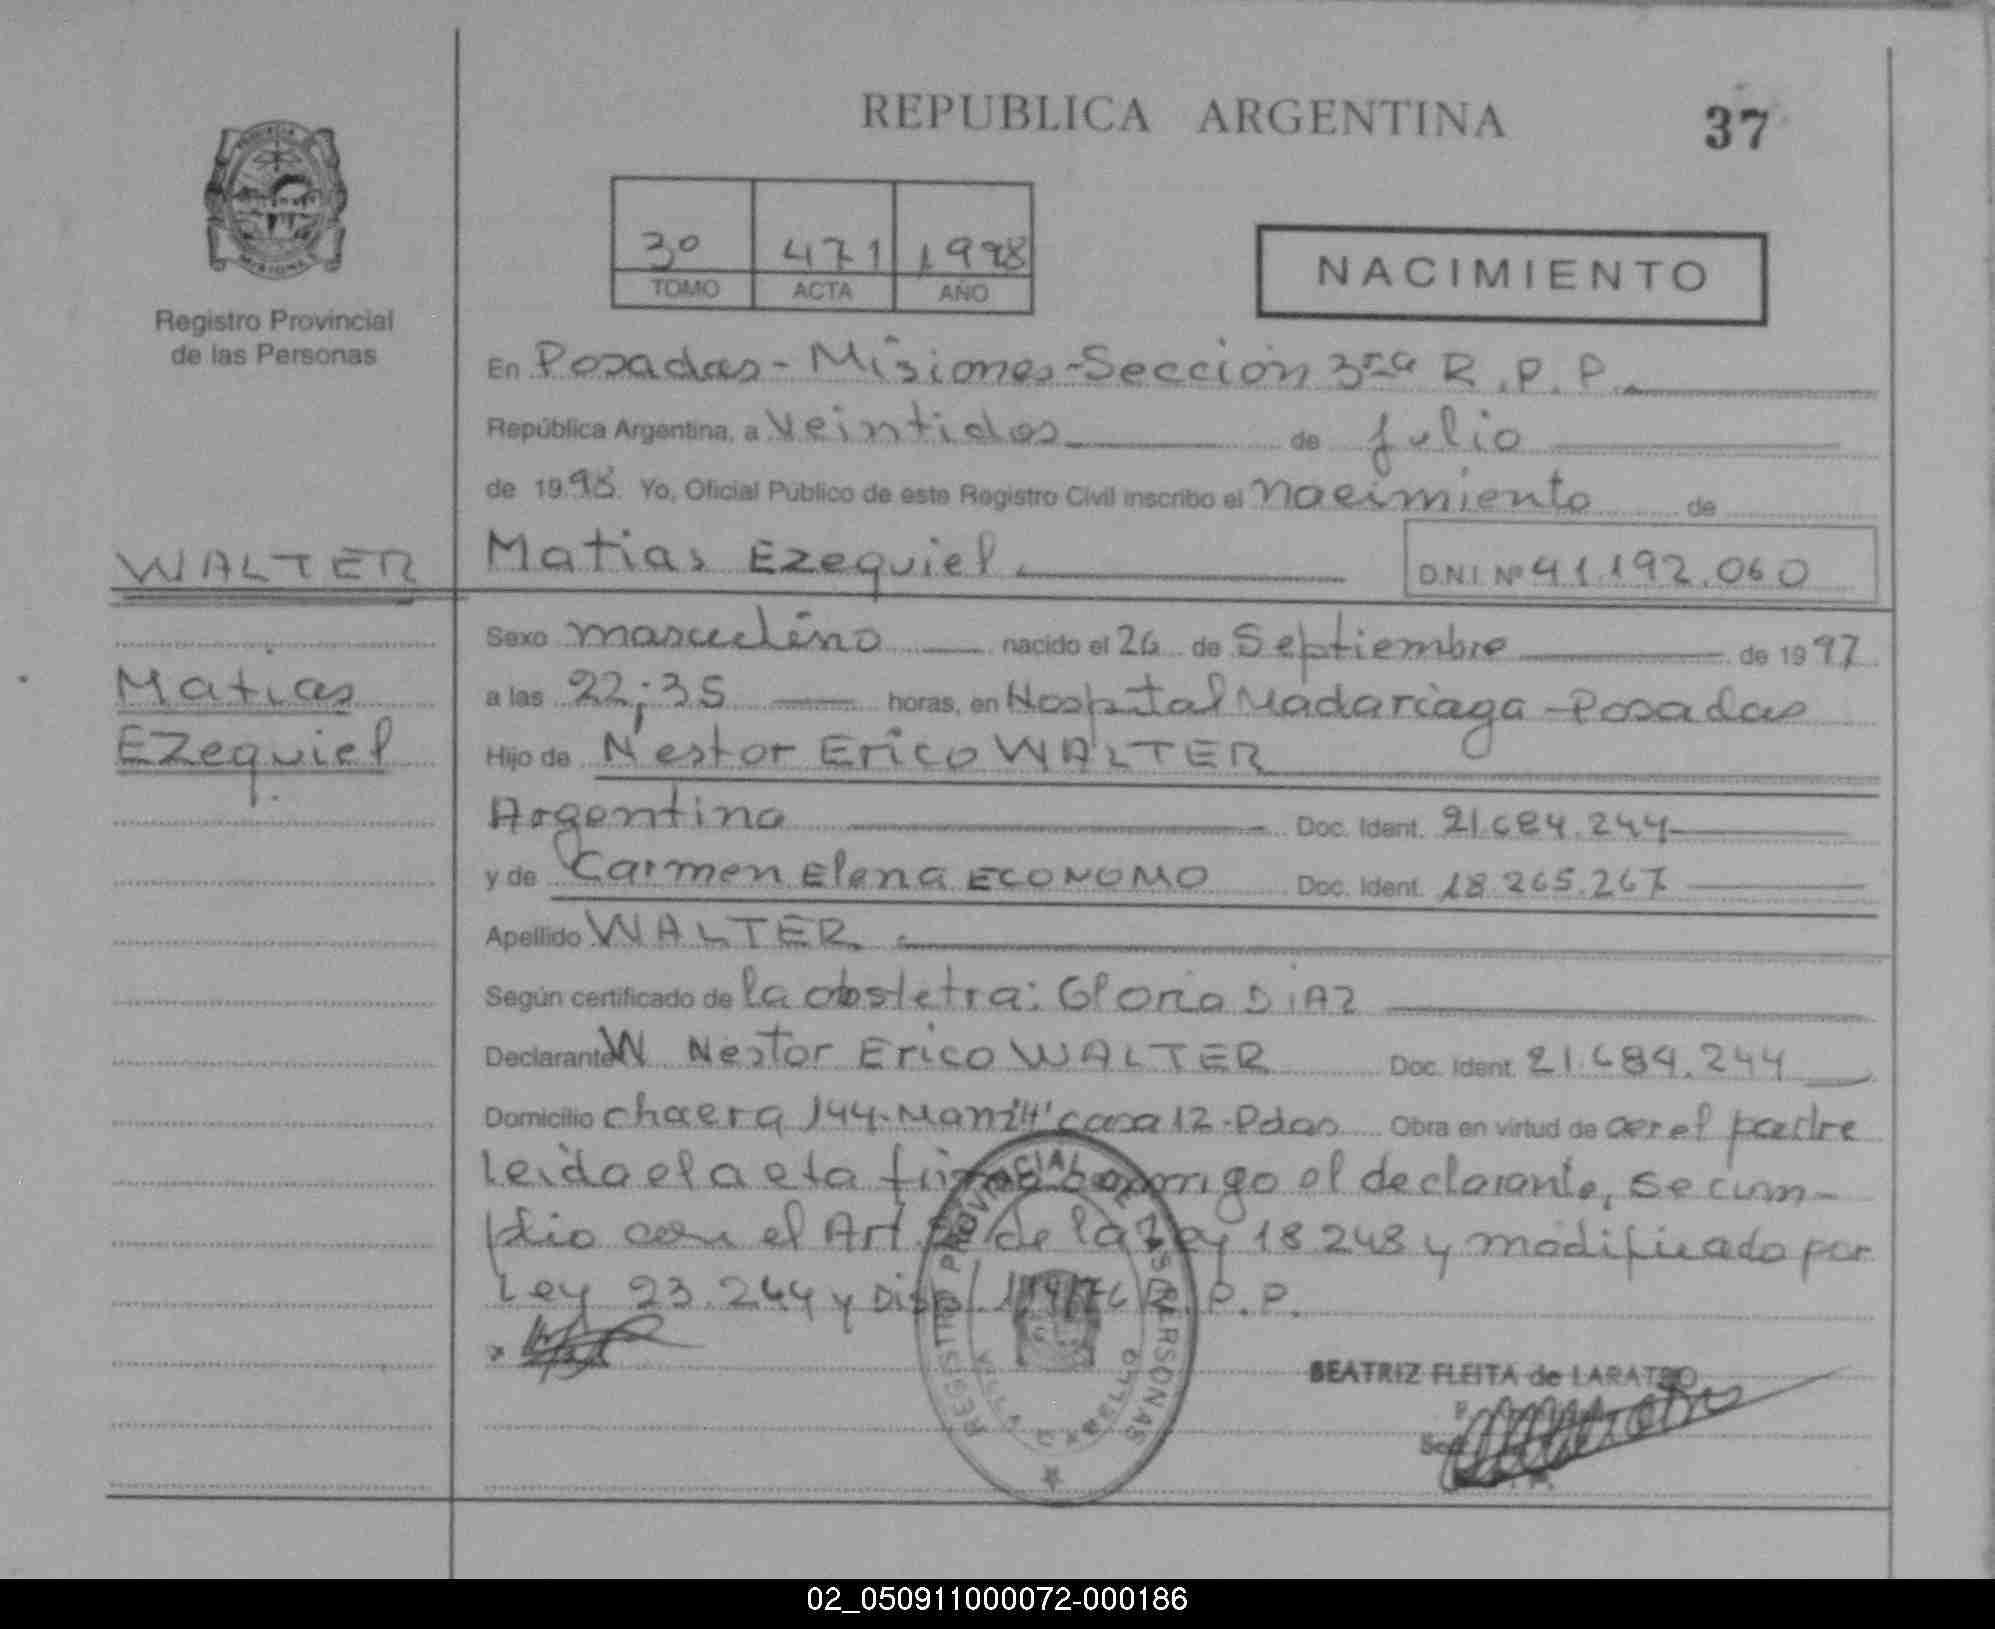 REPUBLICA ARGENTINA
37
3º 471 1998
TOMO ACTA AÑO
NACIMIENTO
Registro Provincial
de las Personas
En Posadas - Misiones - Sección 3ra R.P.P.
República Argentina, a Veintidos de julio
de 1998. Yo, Oficial Público de este Registro Civil inscribo el Nacimiento de
WALTER
Matias Ezequiel
D.N.I. Nº 41.192.060
Sexo masculino nacido el 26 de Septiembre de 1997
Matias
a las 22;35 horas, en Hospital Madariaga - Posadas
Ezequiel
Hijo de Nestor Erico WALTER
Argentina Doc. Ident. 21.684.244
y de Carmen Elena ECONOMO Doc. Ident. 18.265.267
Apellido WALTER
Según certificado de la obstetra: Gloria DIAZ
Declarante W Nestor Erico WALTER Doc. Ident. 21.684.244
Domicilio chacra 144- casa 12-Pdas Obra en virtud de ser el padre
Leida el acta firma conmigo el declarante, se cum-
plio con el Art. de la Ley 18248 y modificado por
Ley 23.244 y Disp. R.P.P.
REGISTRO PROVINCIAL DE LAS PERSONAS
BEATRIZ FLEITA de LARATRO
02_050911000072-000186